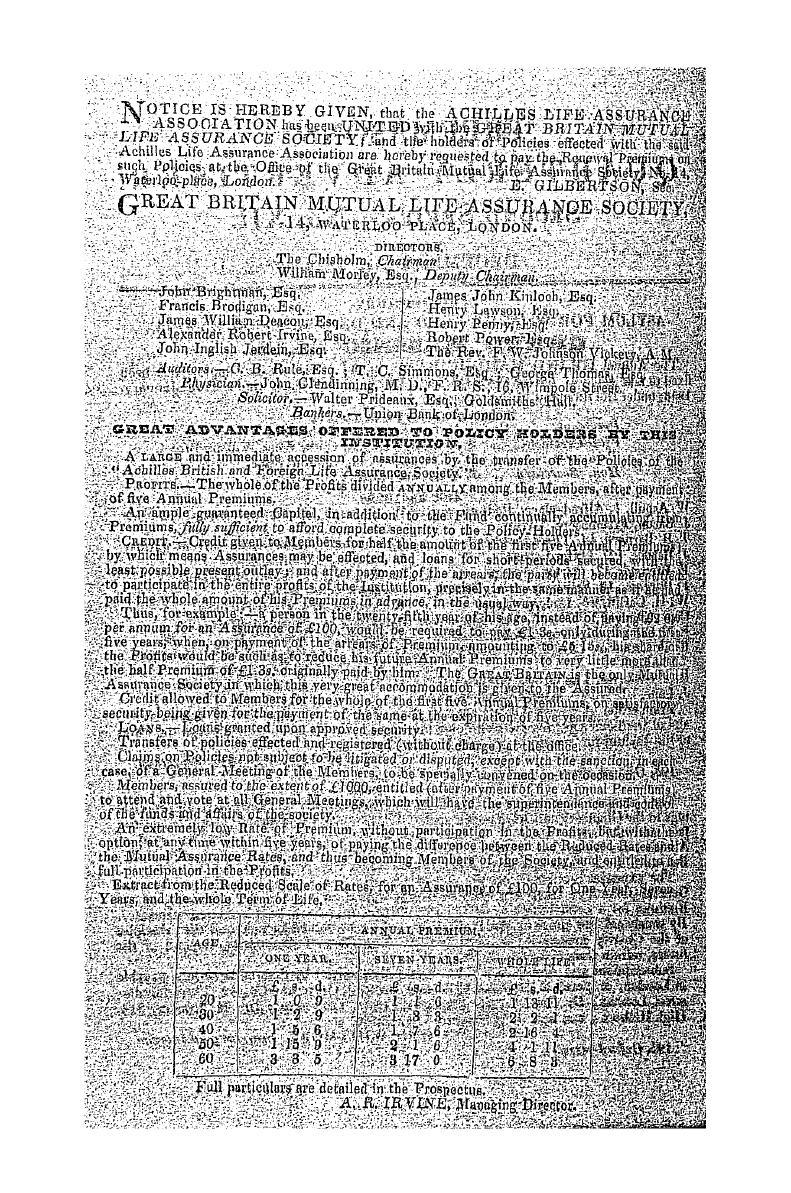 NOTICE IS HEREBY GIVEN, that the ACHILLES LIFE ASSURANCE
ASSOCIATION has been UNITED with the GREAT BRITAIN MUTUAL
LIFE ASSURANCE SOCIETY; and the holders of Policies effected with the said
Achilles Life Assurance Association are hereby requested to pay the Renewal Premiums on
such Policies at the Office of the Great Britain Mutual Life Assurance Society, No. 14,
Waterloo-place, London.
E. GILBERTSON, Sec.
GREAT BRITAIN MUTUAL LIFE ASSURANCE SOCIETY,
14, WATERLOO PLACE, LONDON.
DIRECTORS.
The Chisholm, Chairman
William Morley, Esq., Deputy Chairman.
John Brightman, Esq.
Francis Brodigan, Esq.
James William Deacon, Esq.
Alexander Robert Irvine, Esq.
John Inglish Jerdein, Esq.
James John Kinloch, Esq.
Henry Lawson, Esq.
Henry Penny, Esq.
Robert Power, Esq.
The Rev. F. W. Johnson Vickery, A.M.
Auditors.—C. B. Rule, Esq.; T. C. Simmons, Esq.; George Thomas, Esq.
Physician.—John Clendinning, M. D., F. R. S., 16, Wimpole Street
Solicitor.—Walter Prideaux, Esq., Goldsmiths' Hall.
Bankers.—Union Bank of London.
GREAT ADVANTAGES OFFERED TO POLICY HOLDERS BY THIS
INSTITUTION.
A LARGE and immediate accession of assurances by the transfer of the Policies of the
"Achilles British and Foreign Life Assurance Society."
PROFITS.—The whole of the Profits divided ANNUALLY among the Members, after payment
of five Annual Premiums.
An ample guaranteed Capital, in addition to the Fund continually accumulating from
Premiums, fully sufficient to afford complete security to the Policy Holders
CREDIT.—Credit given to Members for half the amount of the first five Annual Premiums,
by which means Assurances may be effected, and loans for short periods secured, with the
least possible present outlay; and after payment of the arrears, the party will become entitled
to participate in the entire profits of the Institution, precisely in the same manner as if he had
paid the whole amount of his Premiums in advance, in the usual way.
Thus, for example:—a person in the twenty-fifth year of his age, instead of paying
per annum for an Assurance of £100, would be required to pay £1 3s. only during the first
five years, when, on payment of the arrears of Premium, amounting to £5 15s., his share of
the Profits would be such as to reduce his future Annual Premiums to very little more than
the half Premium of £1 3s. originally paid by him. The GREAT BRITAIN is the only Mutual
Assurance Society in which this very great accommodation is given to the Assured.
Credit allowed to Members for the whole of the first five Annual Premiums, on satisfactory
security being given for the payment of the same at the expiration of five years.
LOANS.—Loans granted upon approved security.
Transfers of policies effected and registered (without charge) at the office.
Claims on Policies not subject to be litigated or disputed, except with the sanction, in each
case, of a General Meeting of the Members, to be specially convened on the occasion.
Members, assured to the extent of £1000, entitled (after payment of five Annual Premiums)
to attend and vote at all General Meetings, which will have the superintendence and control
of the funds and affairs of the society.
An extremely low Rate of Premium, without participation in the Profits, but with the
option, at any time within five years, of paying the difference between the Reduced Rates and
the Mutual Assurance Rates, and thus becoming Members of the Society, and entitled to
full participation in the Profits.
Extract from the Reduced Scale of Rates, for an Assurance of £100, for One Year, Seven
Years, and the whole Term of Life.
AGE. ANNUAL PREMIUM.
ONE YEAR. SEVEN YEARS. WHOLE LIFE
£ s. d. £ s. d. £ s. d.
20 1 0 9 1 1 6 1 13 11
30 1 2 9 1 3 3 2 2 1
40 1 5 6 1 7 6 2 16 4
50 1 15 9 2 1 6 4 1 11
60 3 3 5 3 17 0 6 8 3
Full particulars are detailed in the Prospectus.
A. R. IRVINE, Managing Director.